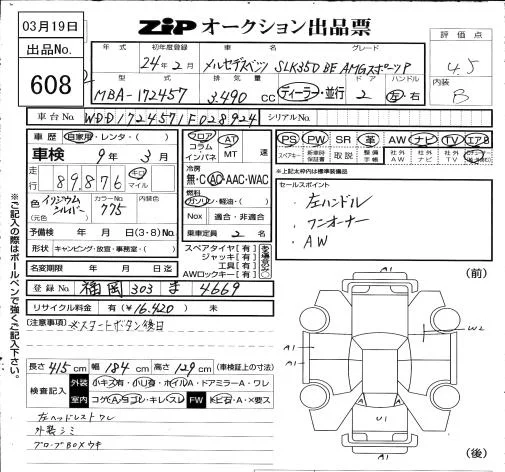 03月19日
ZIP オークション出品票
出品No.
608
評価点
4.5
内装
B
年式
初年度登録
24年2月
車名
メルセデスベンツ SLK350 BE AMGスポーツP
グレード
型式
MBA-172457
排気量
3.490 CC
ディーラー・並行
ドア
2
ハンドル
左・右
車台No.
WDD1724571F028924
シリアルNo.
車歴 自家用・レンタ・( )
車検 9年3月
走行
89.876
キロ
マイル
色
(元色)
イリジウムシルバー
カラーNo.
775
内装色
予備検 年 月 日(3・8)No.
形状 キャンピング・放宣・事務室・( )
名変期限 年 月 日迄
フロア
コラム
インパネ
AT
MT
速
冷房
無・C・AC・AAC・WAC
燃料
ガソリン・軽油・( )
Nox 適合・非適合
乗車定員 2 名
スペアタイヤ[有]
ジャッキ[有]
工具[有]
AWロックキー[有]
PS PW SR 革 AW ナビ TV エアB
スペアキー
新車時保証書
取説
整備手帳
社外AW
社外ナビ
社外TV
※上記太枠内は標準装備品
セールスポイント
・左ハンドル
・ワンオーナー
・AW
登録No. 福岡 303 ま 4669
リサイクル料金 有(¥16.420) 未
(注意事項)
※スタートボタン後日
長さ 415 cm 幅 184 cm 高さ 129 cm (車検証上の寸法)
検査記入
外装 小キズ有・小凹有・ホイルA・ドアミラーA・ワレ
室内 コゲA・ヨゴレ・キレスレ FW トビ石・A・×要ス
左ヘッドレストワレ
外装シミ
グローブBOXウキ
※ご記入の際はボールペンで強くご記入下さい。
(前)
A1
W2
A1
A1
U1
A1
(後)